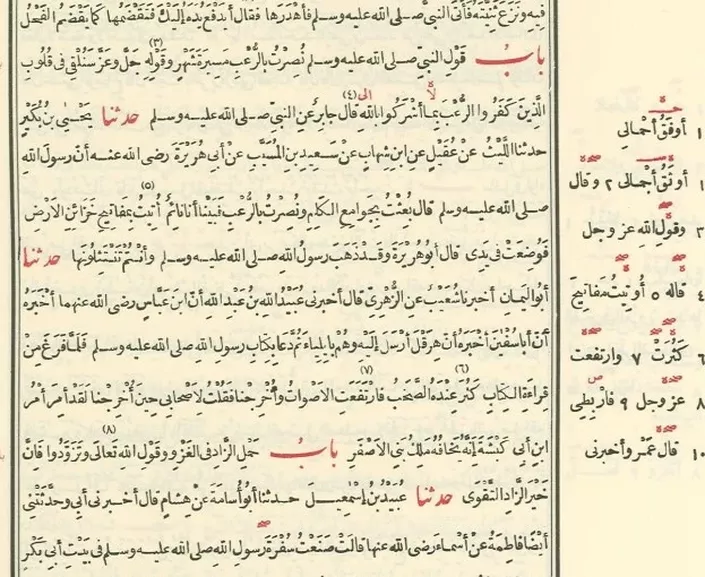 فيه ونزع ثنيته فأتى النبي صلى الله عليه وسلم فأهدرها فقال أيدفع يده إليك فتقضمها كما يقضم الفحل
باب قول النبي صلى الله عليه وسلم نصرت بالرعب مسيرة شهر (٣) وقوله جل وعز سنلقي في قلوب
الذين كفروا الرعب بما أشركوا بالله (٤) قال جابر عن النبي صلى الله عليه وسلم حدثنا يحيى بن بكير
حدثنا الليث عن عقيل عن ابن شهاب عن سعيد بن المسيب عن أبي هريرة رضى الله عنه أن رسول الله
صلى الله عليه وسلم قال بعثت بجوامع الكلم ونصرت بالرعب فبينا أنا نائم (٥) أتيت بمفاتيح خزائن الأرض
فوضعت في يدى قال أبو هريرة وقد ذهب رسول الله صلى الله عليه وسلم وأنتم تنتثلونها حدثنا
أبو اليمان أخبرنا شعيب عن الزهري قال أخبرني عبيد الله بن عبد الله أن ابن عباس رضى الله عنهما أخبره
أن أبا سفين أخبره أن هرقل أرسل إليه وهم بإيلياء ثم دعا بكتاب رسول الله صلى الله عليه وسلم فلما فرغ من
قراءة الكتاب (٦) كثر عنده الصخب (٧) فارتفعت الأصوات وأخرجنا فقلت لأصحابي حين أخرجنا لقد أمر أمر
ابن أبي كبشة إنه يخافه ملك بني الأصفر باب حمل الزاد في الغزو (٨) وقول الله تعالى وتزودوا فإن
خير الزاد التقوى حدثنا عبيد بن إسمعيل حدثنا أبو أسامة عن هشام قال أخبرني أبي وحدثتني
أيضا فاطمة عن أسماء رضى الله عنها قالت صنعت سفرة رسول الله صلى الله عليه وسلم في بيت أبي بكر
١ أوفق أجمالى
١ أوثق أجمالى ٢ وقال
٣ وقول الله عز وجل
٤ قاله ٥ أوتيت مفاتيح
٦ كثرت ٧ وارتفعت
٨ عز وجل ٩ فاربطي
١٠ قال عمرو أخبرني